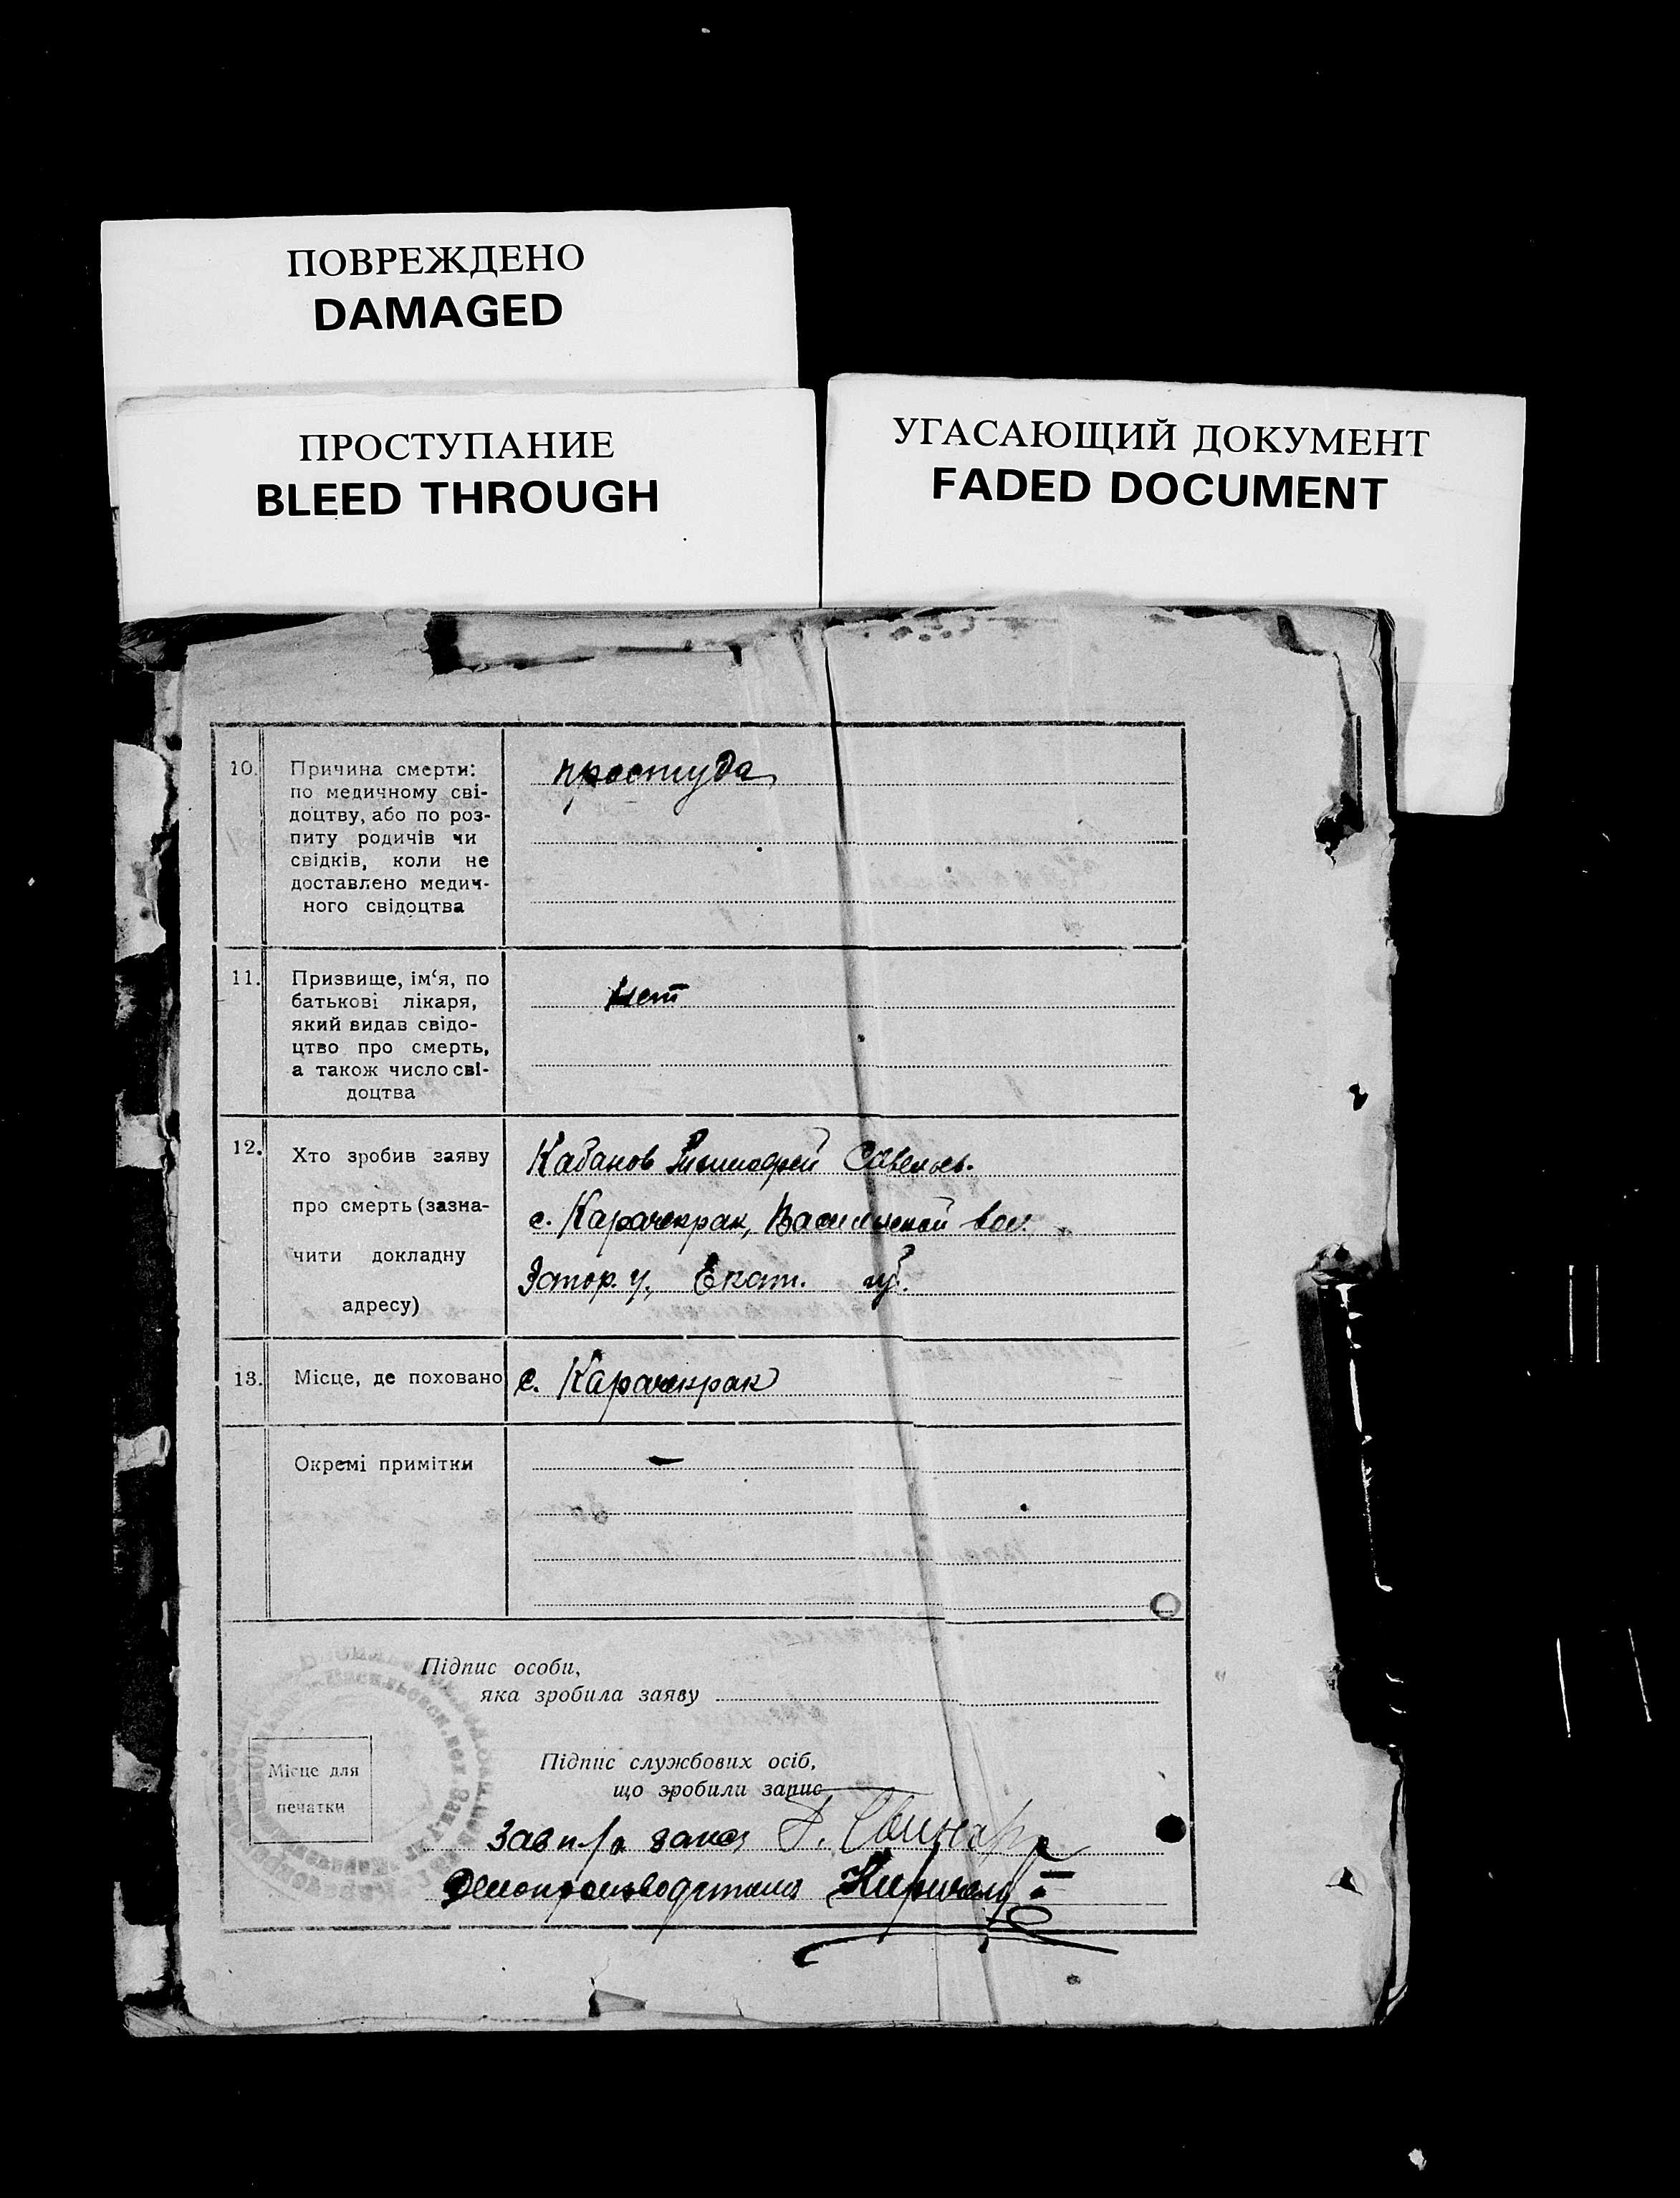 ПОВРЕЖДЕНО
DAMAGED
ПРОСТУПАНИЕ
BLEED THROUGH
УГАСАЮЩИЙ ДОКУМЕНТ
FADED DOCUMENT
10.
Причина смерти:
по медичному сві-
доцтву, або по роз-
питу родичів чи
свідків, коли не
доставлено медич-
ного свідоцтва
простуда
11.
Призвище, ім‘я, по
батькові лікаря,
який видав свідо-
цтво про смерть,
а також число сві-
доцтва
нет
12.
Хто зробив заяву
про смерть (зазна-
чити докладну
адресу)
Кабанов Тимофей Савельев.
с. Карачекрак, Васильевской вол.
Запор. у., Екат. губ.
13.
Місце, де поховано
с. Карачекрак
Окремі примітки
–
Підпис особи,
яка зробила заяву
Місце для
печатки
Підпис службових осіб,
що зробили запис
Зав п/о загса
Делопроизводитель